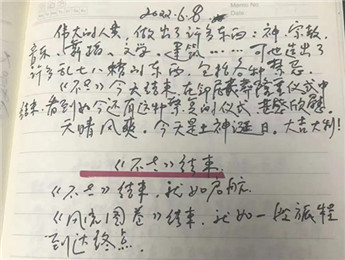 2022.6.8
伟大的人类,做出了许多东西:神、宗教、
音乐、舞蹈、文学、建筑……可也造出了
许多乱七八糟的东西,包括各种禁忌。
《不是》今天结束,在
结束,看到如今还有这种禁忌的仪式,甚感欣慰。
天晴风爽,今天是土神诞日,大吉大利!
《不是》结束
《不是》结束,就如启航。
《风流图卷》结束,就如一段旅程
到达终点。